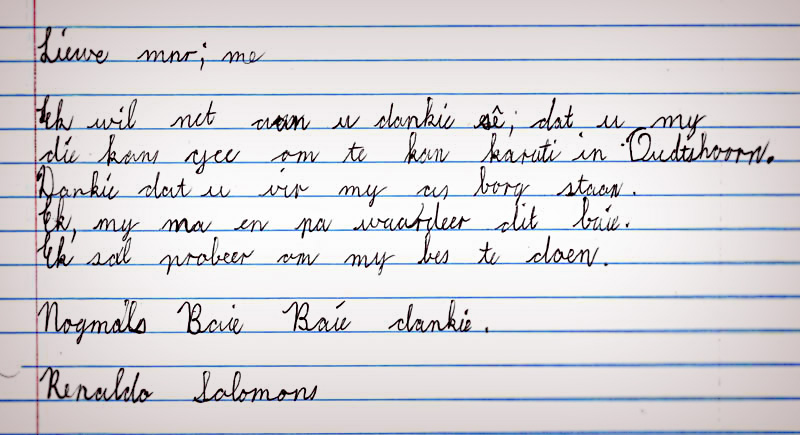 Liewe mnr; me
Ek wil net aan u dankie sê; dat u my
die kans gee om te kan karati in Oudtshoorn.
Dankie dat u vir my as borg staan.
Ek, my ma en pa waardeer dit baie.
Ek sal probeer om my bes te doen.
Nogmals Baie Baie dankie.
Renaldo Salomons